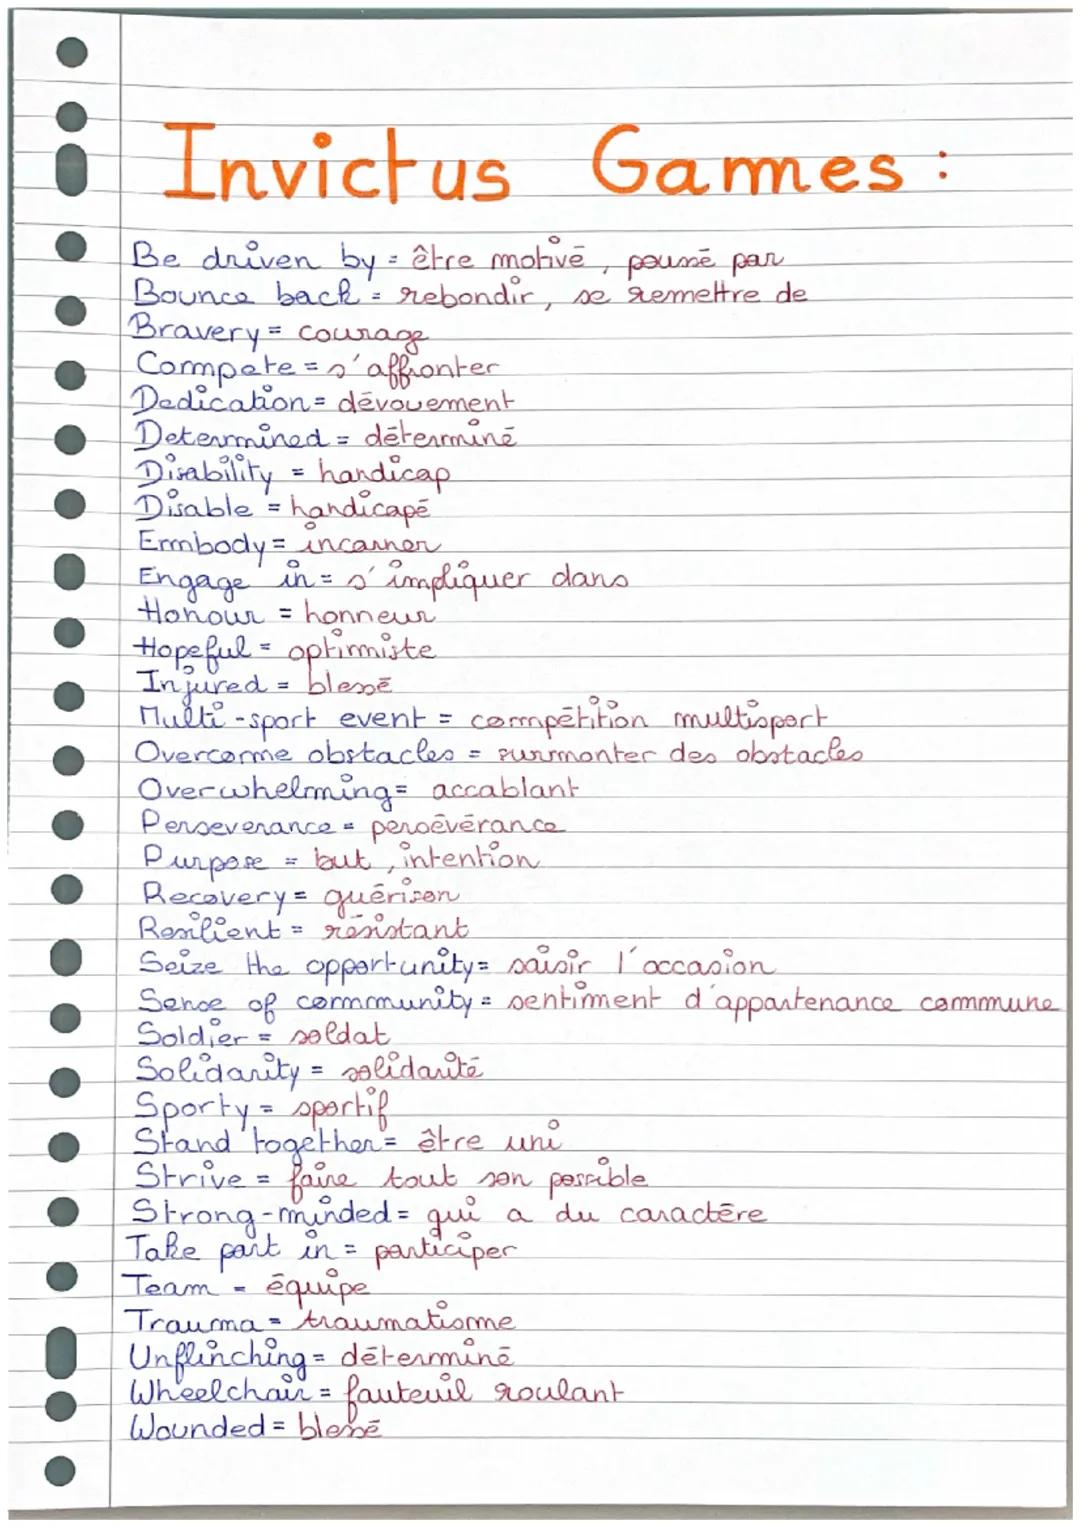 Invictus Games :
Be driven by = être motivé, poussé par
Bounce back = rebondir, se remettre de
Bravery = courage
Compete = s'affronter
Dedication = dévouement
Determined = déterminé
Disability = handicap
Disable = handicapé
Embody = incarner
Engage in = s'impliquer dans
Honour = honneur
Hopeful = optimiste
Injured = blessé
Multi-sport event = compétition multisport
Overcome obstacles = surmonter des obstacles
Overwhelming = accablant
Perseverance = persévérance
Purpose = but, intention
Recovery = guérison
Resilient = résistant
Seize the opportunity = saisir l'occasion
Sense of community = sentiment d'appartenance commune
Soldier = soldat
Solidarity = solidarité
Sporty = sportif
Stand together = être uni
Strive = faire tout son possible
Strong-minded = qui a du caractère
Take part in = participer
Team = équipe
Trauma = traumatisme
Unflinching = déterminé
Wheelchair = fauteuil roulant
Wounded = blessé